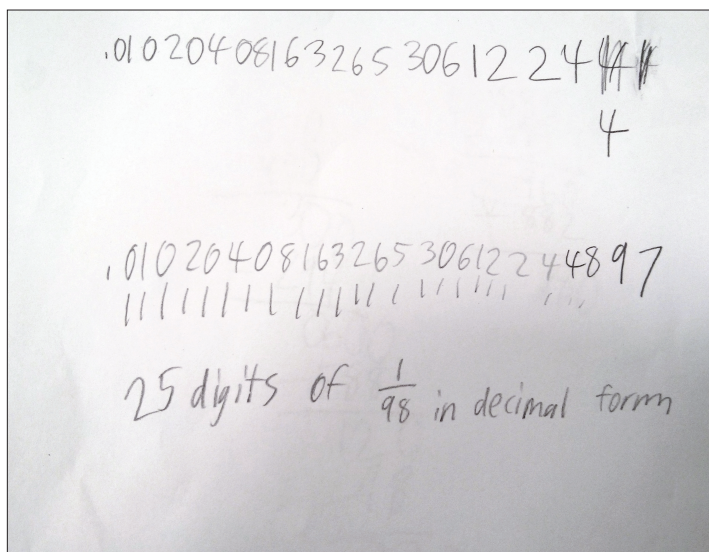 .010204081632653061224
4
.0102040816326530612244897
25 digits of 1/98 in decimal form